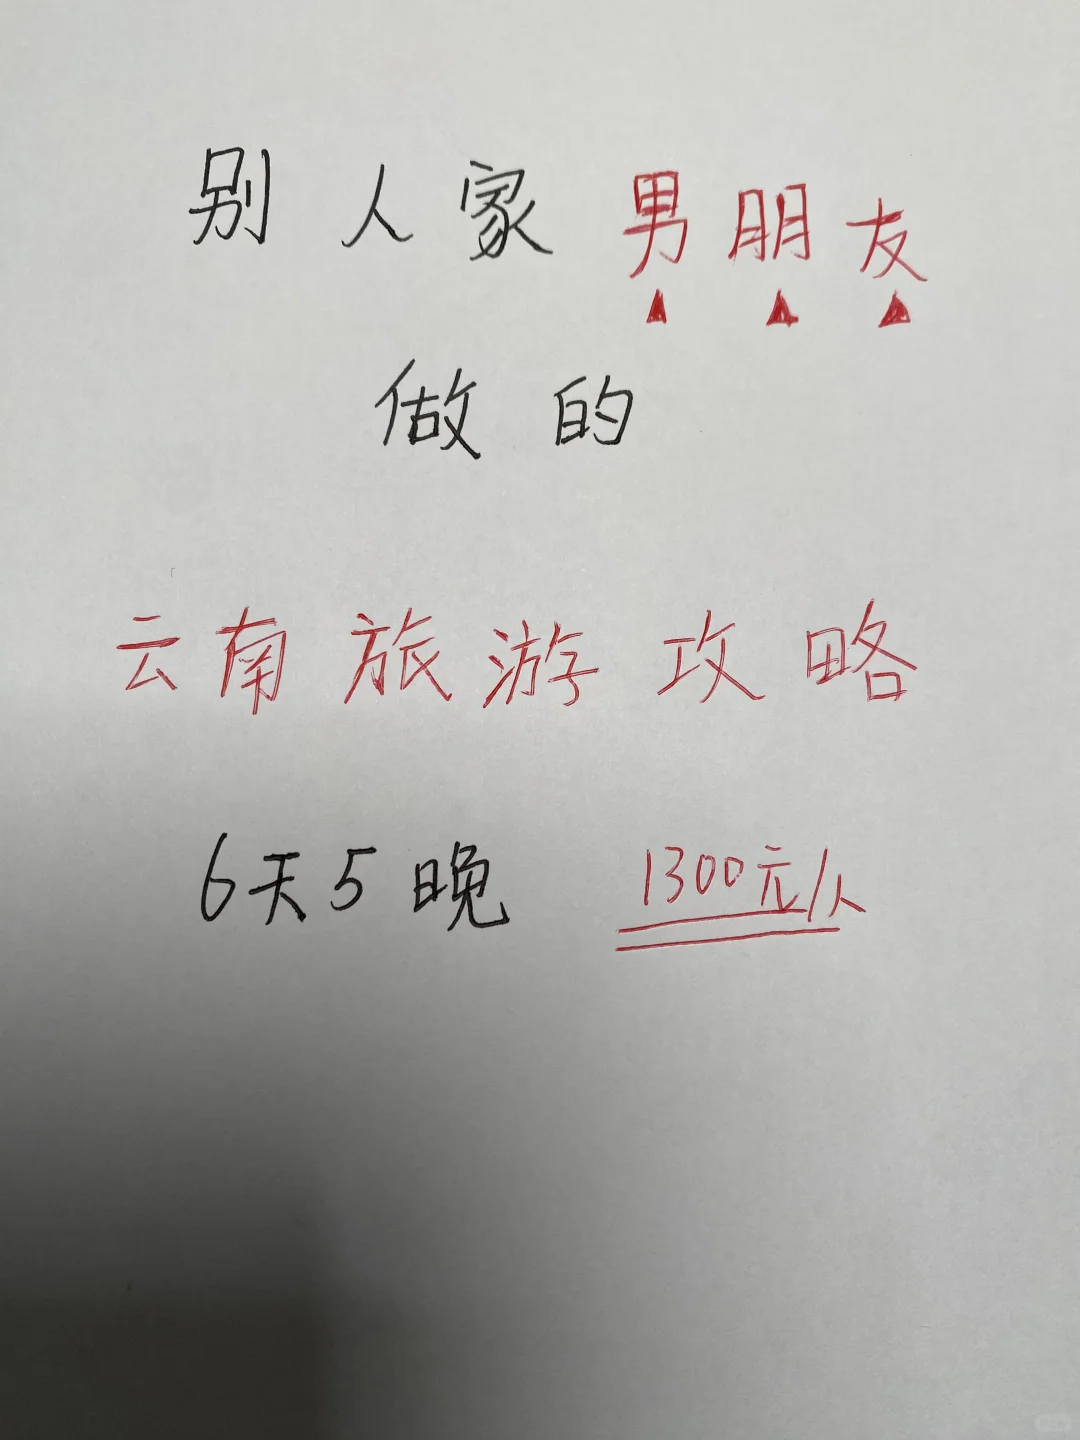 别人家男朋友
做的
云南旅游攻略
6天5晚 1300元/人